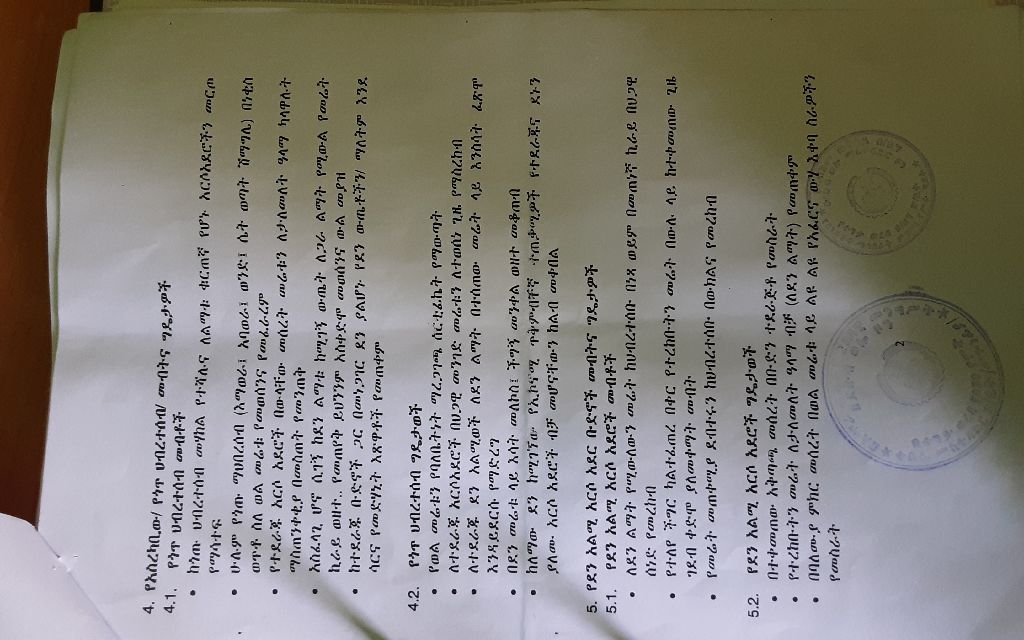 4. የአስረካቢው/ የነጥ ህብረተሰብ/ መብትና ግዴታዎች
4.1. የነጥ ህብረተሰብ መብቶች
• ከነጡ ህብረተሰብ መሃከል የተሻሉና ለልማቱ ቁርጠኛ የሆኑ አርሶአደሮችን መርጦ
የማሳተፍ
• ሁሉም የነጡ ማህበረሰብ (እማወራ፣ አባወራ፣ ወንድ፣ ሴት ወጣት ሽማግሌ) በነቂስ
ወጥቶ ስለ ወል መሬቱ የመወሰንና የመፈራረም
• የተደራጁ አርሶ አደሮች በውላቸው መሰረት መሬቱን ለታለመለት ዓላማ ካላዋሉት
ማስጠንቀቂያ በመስጠት የመንጠቅ
• አስፈላጊ ሆኖ ሲገኝ ከደን ልማቱ ከሚገኝ ውጤት ለጋራ ልማት የሚውል የመሬት
ኪራይ ወዘተ.. የመጠየቅ ይህንንም አስቀድሞ መወሰንና ውል መያዝ
• ከተደራጁ ቡድኖች ጋር በመነጋገር ደን ያልሆኑ የደን ውጤቶችን/ ማለትም እንደ
ሳርና የመድሃኒት እጽዋቶች የመጠቀም
4.2. የነጥ ህብረተሰብ ግዴታወች
• የወል መሬቱን የባለቤትነት ማረጋገጫ ሰርቲፊኬት የማውጣት
• ለተደራጁ አርሶአደሮች በህጋዊ መንገድ መሬቱን ለተወሰነ ጊዜ የማስረከብ
• ለተደራጁ ደን አልሚዎች ለደን ልማት በተሰጠው መሬት ላይ እንስሳት ፈጽሞ
እንዳይደርሱ የማድረግ
• በደን መሬቱ ላይ እሳት መለኮስ፣ ችግኝ መንቀል ወዘተ መቆጠብ
• ከለማው ደን ከሚገኘው የኢኮኖሚ ጥቅምብቸኛ ተጠቃሚዎች የተደራጁና ደኑን
ያለሙ አርሶ አደሮች ብቻ መሆናቸውን ከልብ መቀበል
5. የደን አልሚ አርሶ አደር ቡድኖች መብትና ግዴታዎች
5.1. የደን አልሚ አርሶ አደሮች መብቶች
• ለደን ልማት የሚውለውን መሬት ከህብረተሰቡ በነጻ ወይም በመጠነኛ ኪራይ በህጋዊ
ሰነድ የመረከብ
• የተለየ ችግር ካልተፈጠረ በቀር የተረከቡትን መሬት በውሉ ላይ ከተቀመጠው ጊዜ
ገደብ ቀድሞ ያለመቀማት መብት
• የመሬት መጠቀሚያ ደብተሩን ከህብረተሰቡ በውክልና የመረከብ
5.2. የደን አልሚ አርሶ አደሮች ግዴታዎች
• በተቀመጠው አቅጣጫ መሰረት በቡድን ተደራጅቶ የመስራት
• የተረከቡትን መሬት ለታለመለት ዓላማ ብቻ (ለደን ልማት) የመጠቀም
• በባለሙያ ምክር መሰረት በወል መሬቱ ላይ ልዩ ልዩ የአፈርና ውሃ እቀባ ስራዎችን
የመስራት
2